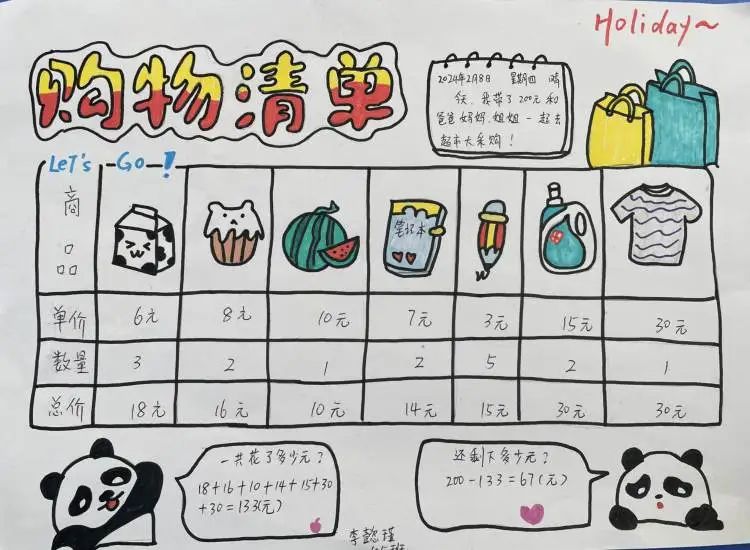 Holiday~
购物清单
2024年2月8日 星期四 晴
今天,我带了200元和
爸爸妈妈,姐姐一起去
超市大采购!
LeT's Go!
商品
笔记本
单价 6元 8元 10元 7元 3元 15元 30元
数量 3 2 1 2 5 2 1
总价 18元 16元 10元 14元 15元 30元 30元
一共花了多少元?
18+16+10+14+15+30
+30=133(元)
还剩下多少元?
200-133=67(元)
李懿瑾